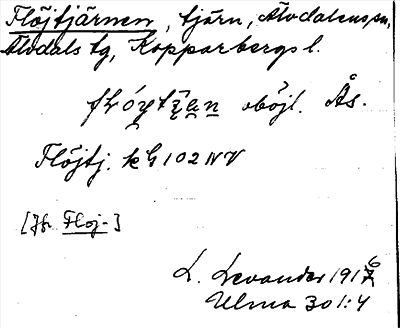 Flöjtjärnen, tjärn, Älvdalens sn,
Älvdals tg, Kopparbergs l.
oböjl. Ås.
Flöjtj. k G 102 NV
[Jfr Floj-]
L. Levander 1916
Ulma 301:4